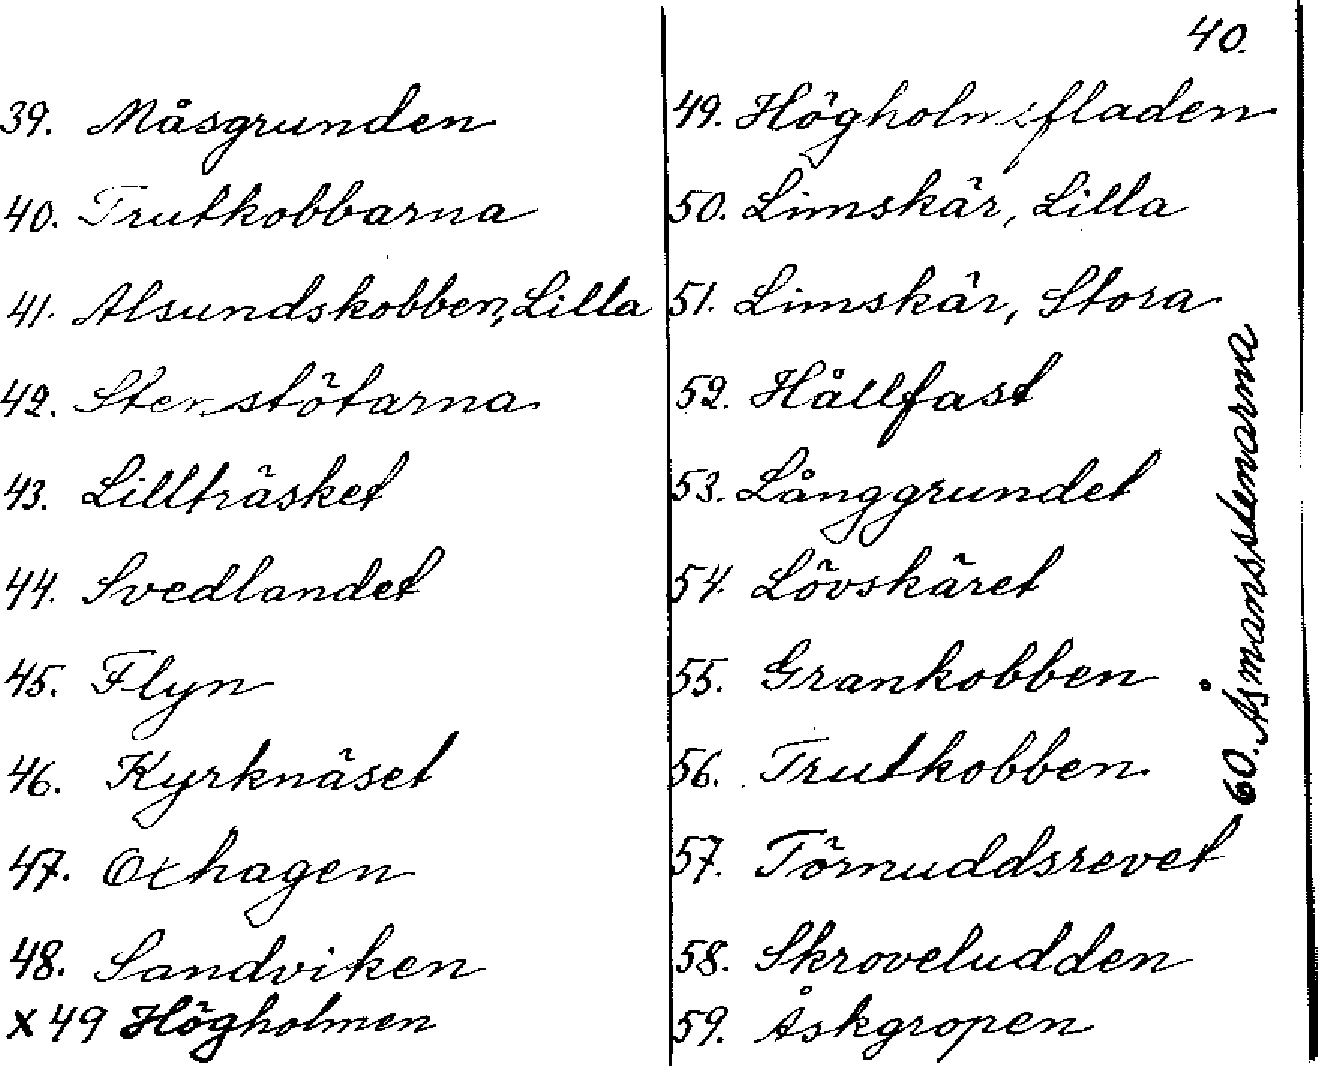 40.
39. Måsgrunden
40. Trutkobbarna
41. Alsundskobben, Lilla
42. Stenstötarna
43. Lillträsket
44. Svedlandet
45. Flyn
46. Kyrknäset
47. Oxhagen
48. Sandviken
x 49 Högholmen
49. Högholmsfladen
50. Limskär, Lilla
51. Limskär, Stora
52. Hållfast
53. Långgrundet
54. Lövskäret
55. Grankobben
56. Trutkobben
57. Törnuddsrevet
58. Skroveludden
59. Åskgropen
60. Åsmansstenarna